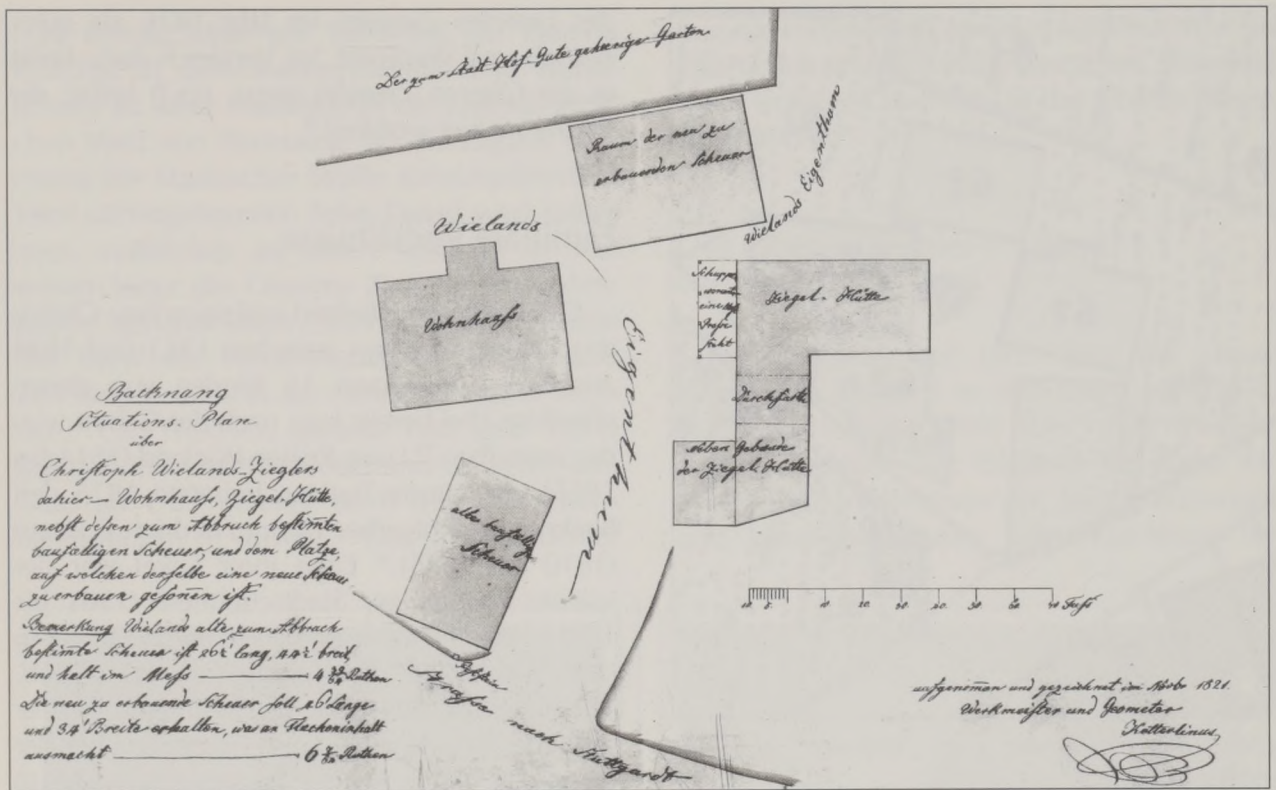 Der zum Stadt Hof Gute gehoerige Garten.
Raum der neu zu
erbauenden Scheuer
Wielands Eigenthum
Wielands
Eigenthum
Wohnhauss
Schuppe
worunter
eine
Presse
steht
Ziegel-Hütte
Durchfarth
Neben Gebäude
der Ziegel-Hütte
alte baufällige
Scheuer
Backnang
Situations-Plan
über
Christoph Wielands-Zieglers
dahier — Wohnhauss, Ziegel-Hütte,
nebst desen zum Abbruch bestimten
baufälligen Scheuer, und dem Platze,
auf welchen derselbe eine neue Scheur
zu erbauen gesonen ist.
Bemerkung Wielands alte zum Abbruch
bestimte Scheuer ist lang, breit,
und halt im Mess — 4 Ruthen
Die neu zu erbauende Scheuer soll Länge
und 34' Breite erhalten, was an Flecheninhalt
ausmacht — 6 Ruthen
Strasse nach Stuttgardt
10 5 10 20 30 40 50 60 70 Fuss
aufgenomen und gezeichnet im 1821.
Werkmeister und Geometer
Ketterlinus